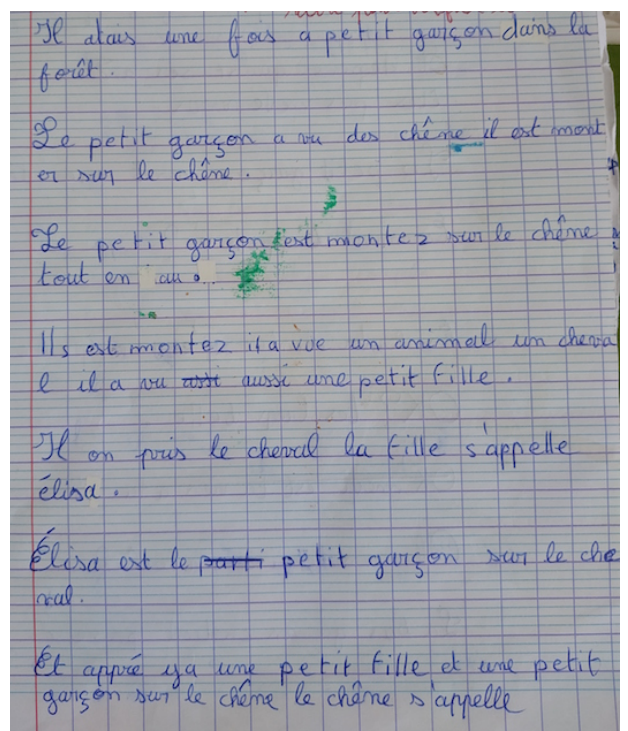 Il atais une fois a petit garçon dains la
forêt.
Le petit garçon a vu des chêne il est mont
er sur le chêne.
Le petit garçon est montez sur le chêne
tout en au.
Ils est montez il a vue un animal um cheva
l il a vu aussi une petit fille.
Il on pris le cheval la fille s'appelle
élisa.
Élisa est le parti petit garçon sur le che
val.
Et appré ya une petit fille et une petit
garçon sur le chêne le chêne s'appelle